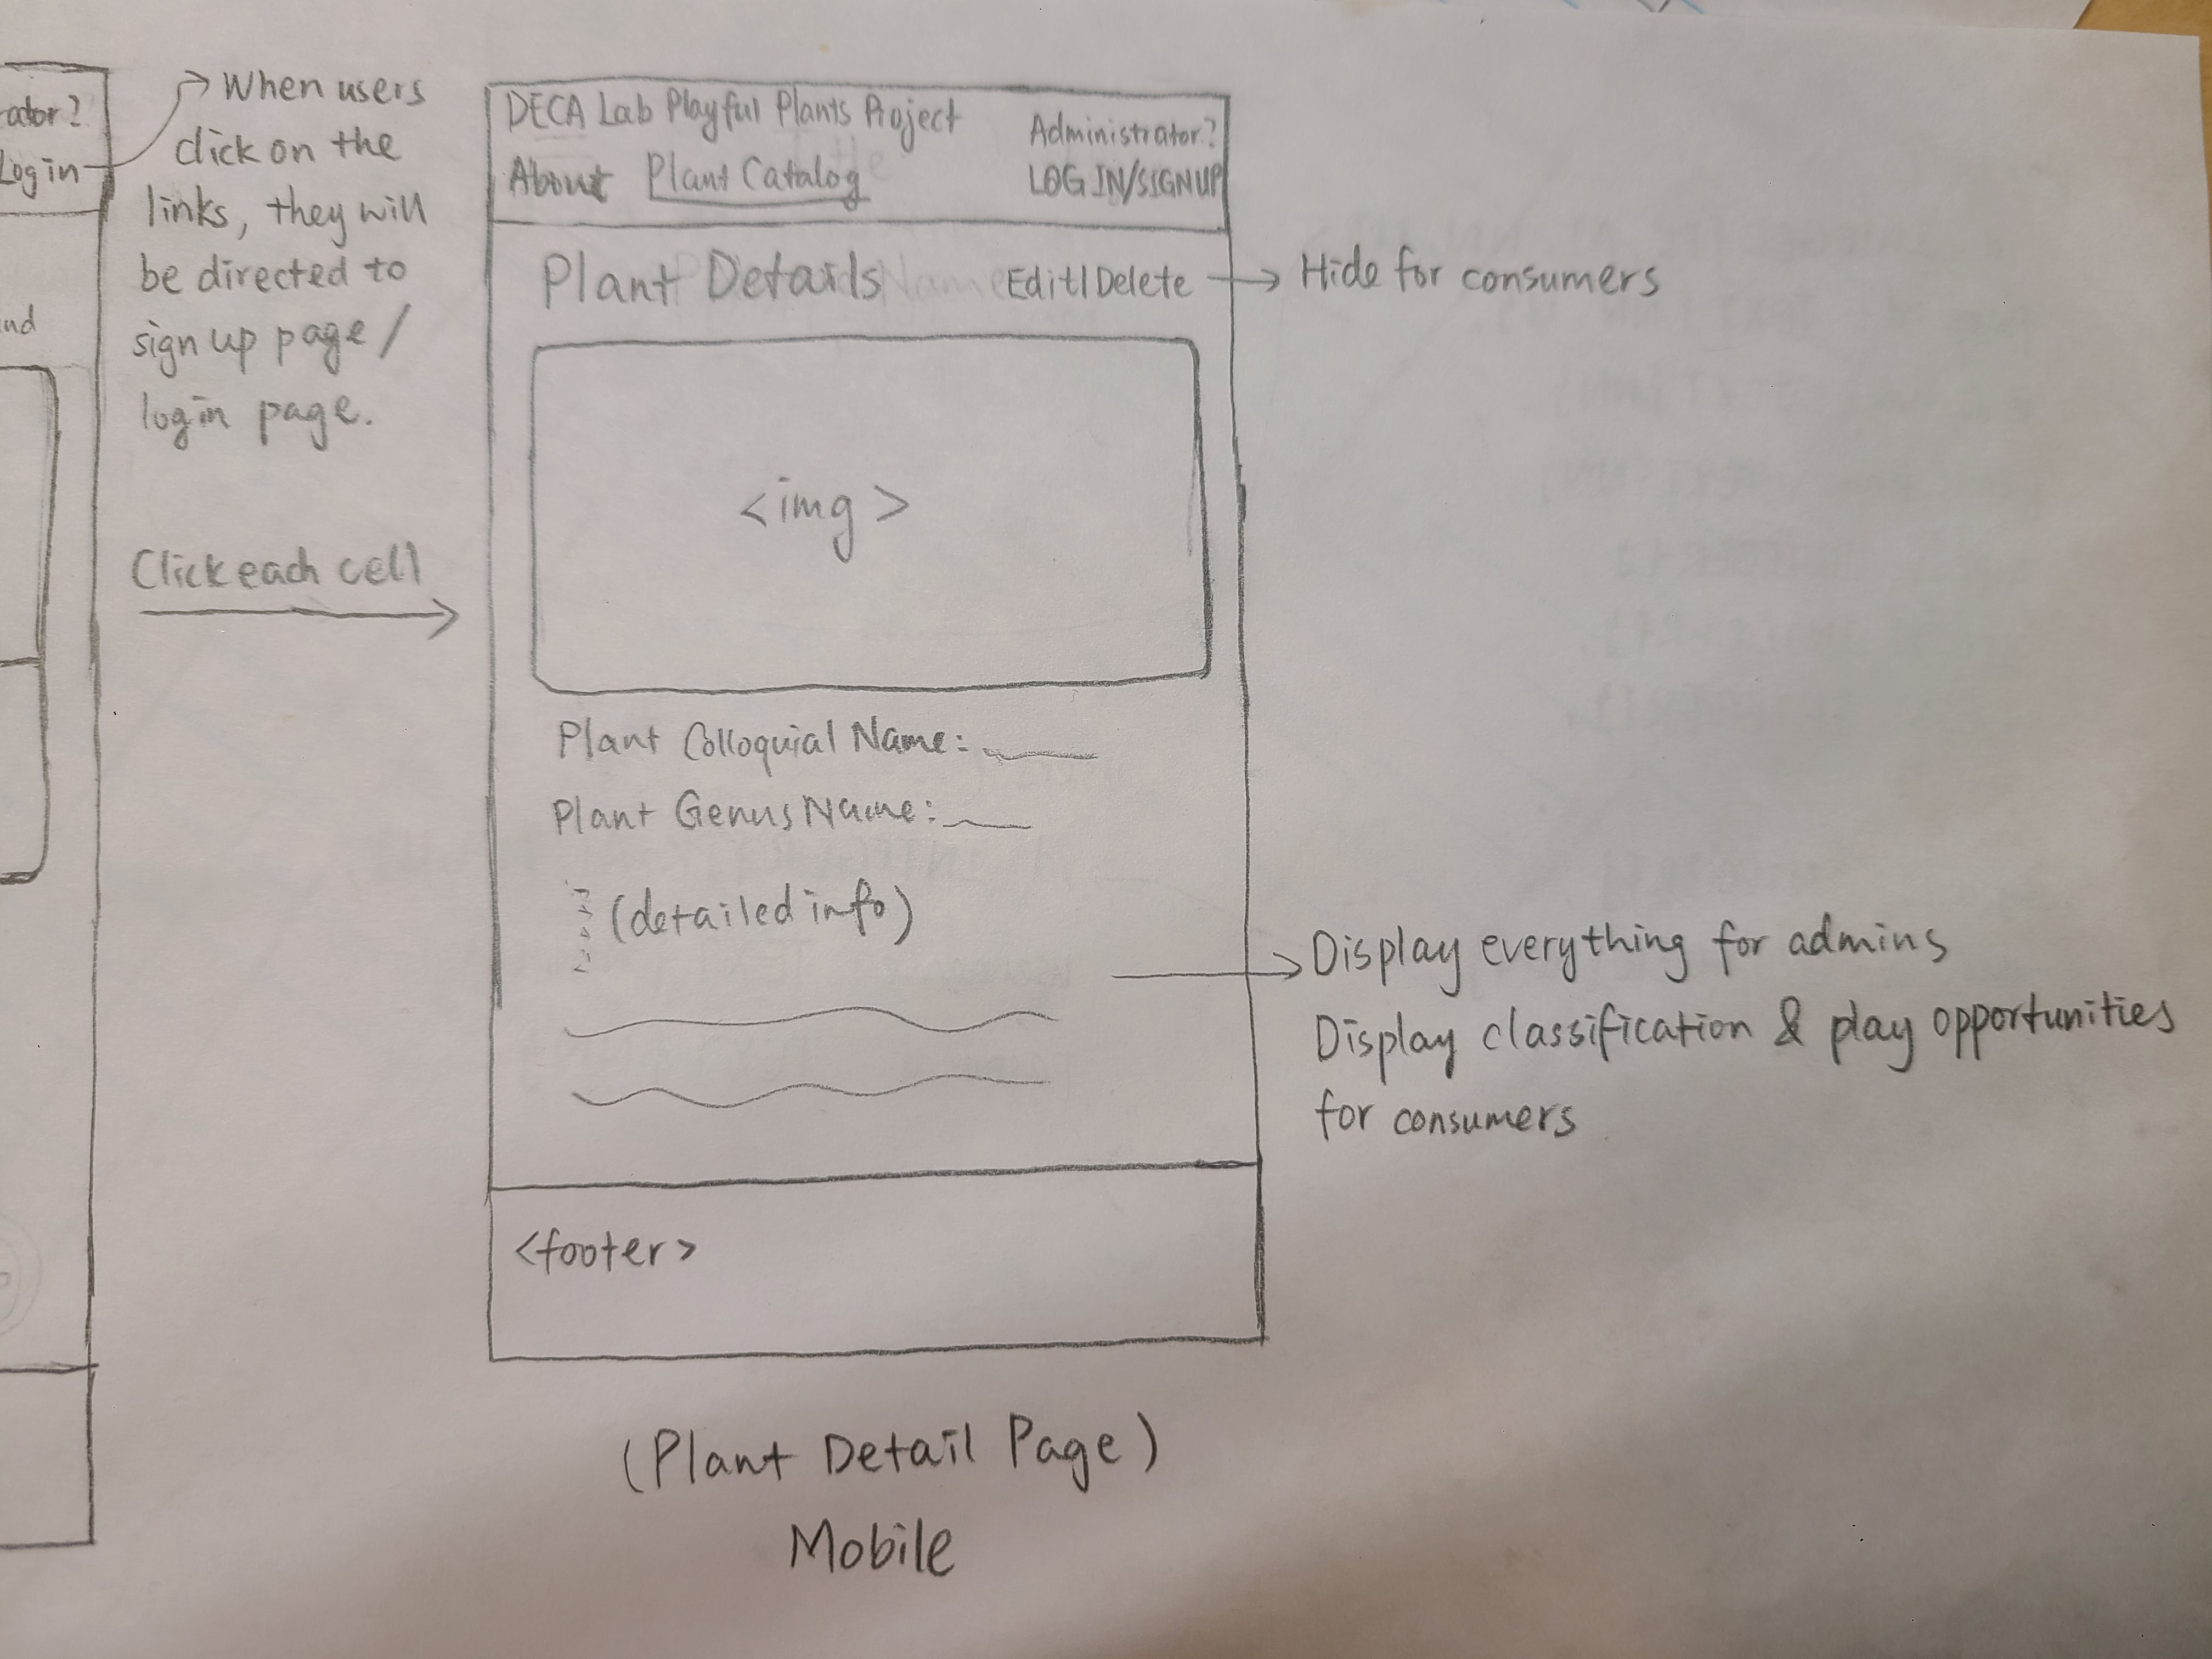 ator?
Login
nd
When users
click on the
links, they will
be directed to
sign up page /
login page.
Click each cell
DECA Lab Playful Plants Project
Administrator?
About Plant Catalog
LOG IN/SIGN UP
Plant Details
Name
Edit|Delete
Hide for consumers
<img>
Plant Colloquial Name:
Plant Genus Name:
(detailed info)
Display everything for admins
Display classification & play opportunities
for consumers
<footer>
(Plant Detail Page)
Mobile